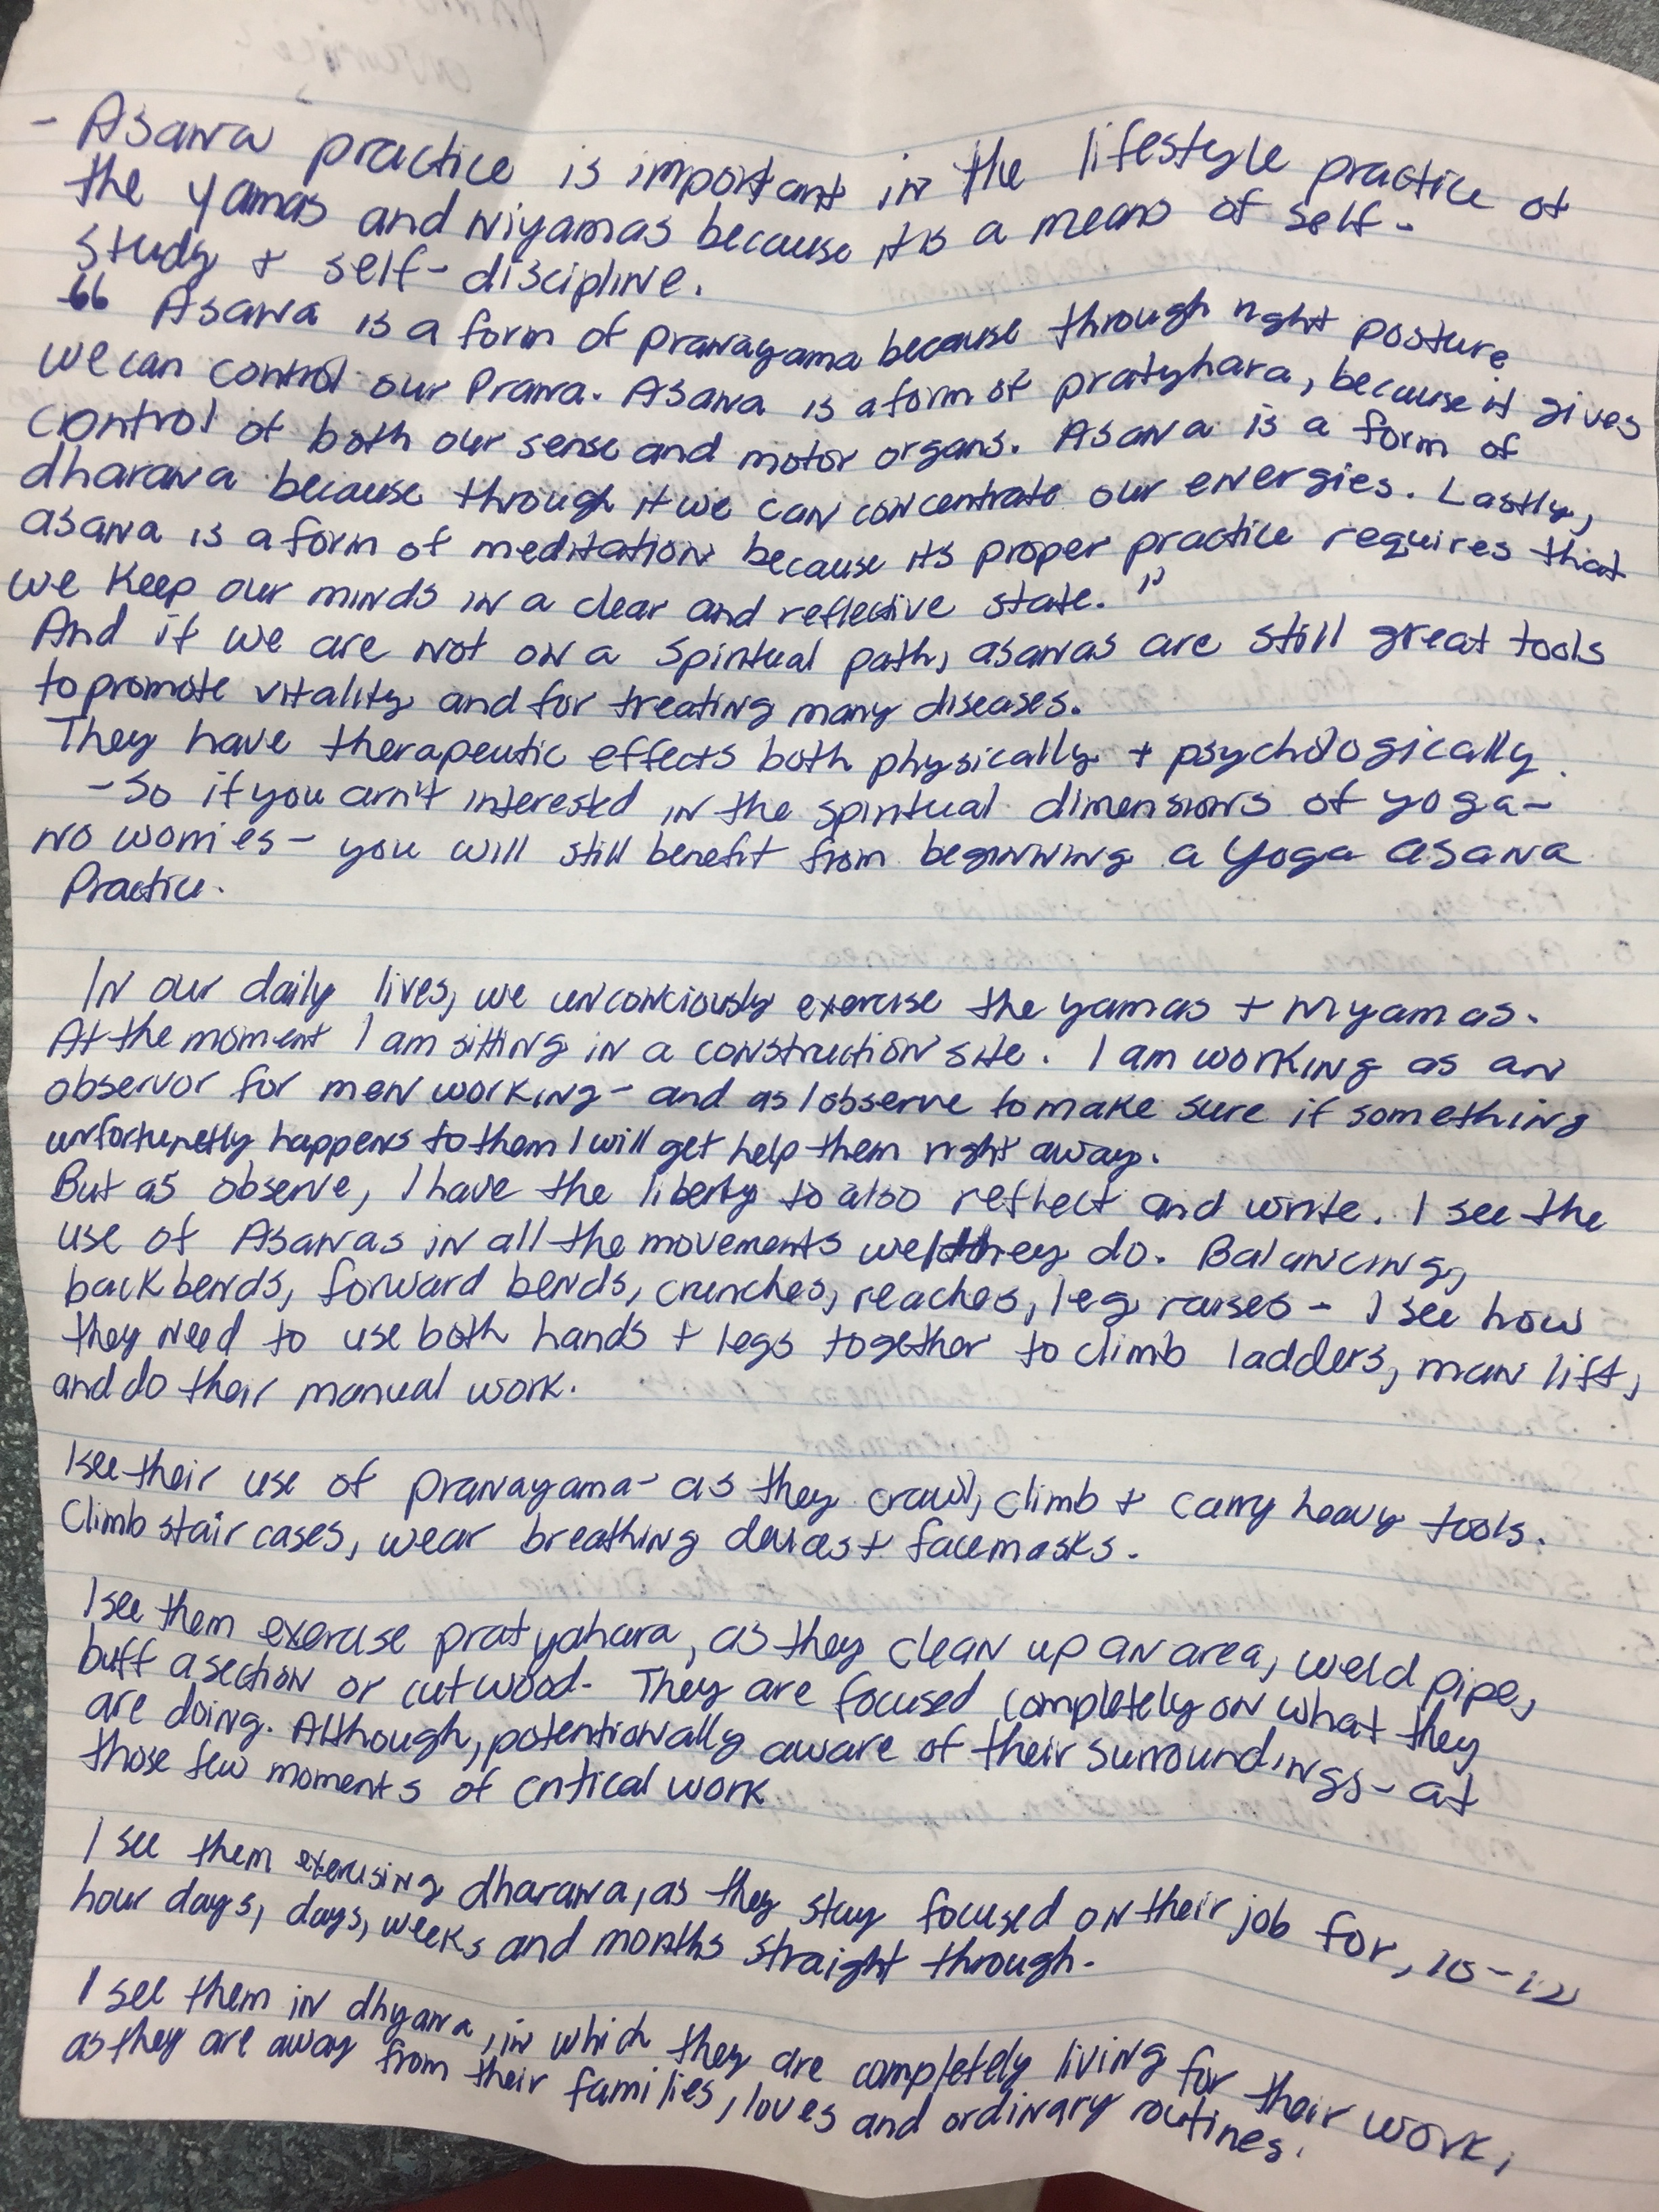 - Asana practice is important in the lifestyle practice of
the yamas and Niyamas because its a means of self-
study + self-discipline.
"Asana is a form of pranayama because through right posture
we can control our Prana. Asana is a form of pratyhara, because it gives
control of both our sense and motor organs. Asana is a form of
dharana because through it we can concentrate our energies. Lastly,
asana is a form of meditation because its proper practice requires that
we keep our minds in a clear and reflective state."
And if we are not on a spiritual path, asanas are still great tools
to promote vitality and for treating many diseases.
They have therapeutic effects both physically + psychologically.
- So if you arn't interested in the spiritual dimensions of yoga-
no worries - you will still benefit from beginning a yoga asana
Practice.
In our daily lives, we unconciously exercise the yamas + niyamas.
At the moment I am sitting in a construction site. I am working as an
observor for men working - and as I observe to make sure if something
unfortunetly happens to them I will get help them right away.
But as observe, I have the liberty to also reflect and write. I see the
use of Asanas in all the movements they do. Balancing,
back bends, forward bends, crunches, reaches, leg raises - I see how
they need to use both hands + legs together to climb ladders, man lift,
and do their manual work.
I see their use of pranayama - as they crawl, climb + carry heavy tools.
Climb stair cases, wear breathing devices + facemasks.
I see them exercise pratyahara, as they clean up an area, weld pipe,
buff a section or cut wood. They are focused completely on what they
are doing. Although, potentionally aware of their surroundings - at
those few moments of critical work
I see them exerusing dharana, as they stay focused on their job for, 10-12
hour days, days, weeks and months straight through.
I see them in dhyana, in which they are completely living for their work,
as they are away from their families, loves and ordinary routines.